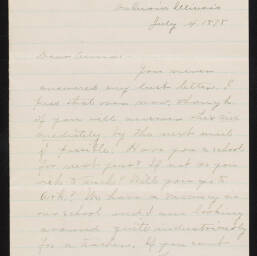 Illinois
July 4, 1878
Dear Anna:
You never
answered my last letter. I
feel that now, though
if you will answer this im-
mediately by the next mail
if possible. Have you a school
for next year? If not do you
wish to teach? Will you go to
work? We have a vacancy in
our school and I am looking
around quite industriously
for a teacher. If you want